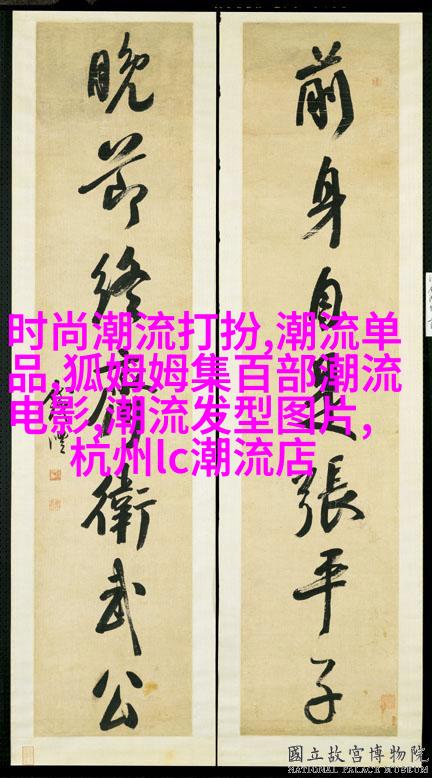 前身自是張平子
晚節終爲衛武公
时尚潮流打扮,潮流单
品,狐姆姆集百部,潮流
电影,潮流发型图片,
杭州lc潮流店
國立故宮博物院
NATIONAL PALACE MUSEUM